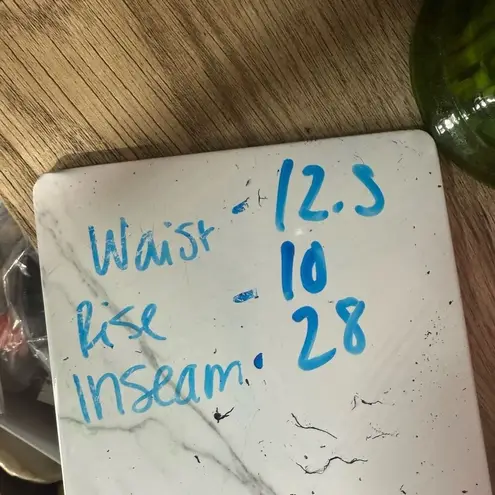 Waist - 12.5
Rise - 10
Inseam. 28